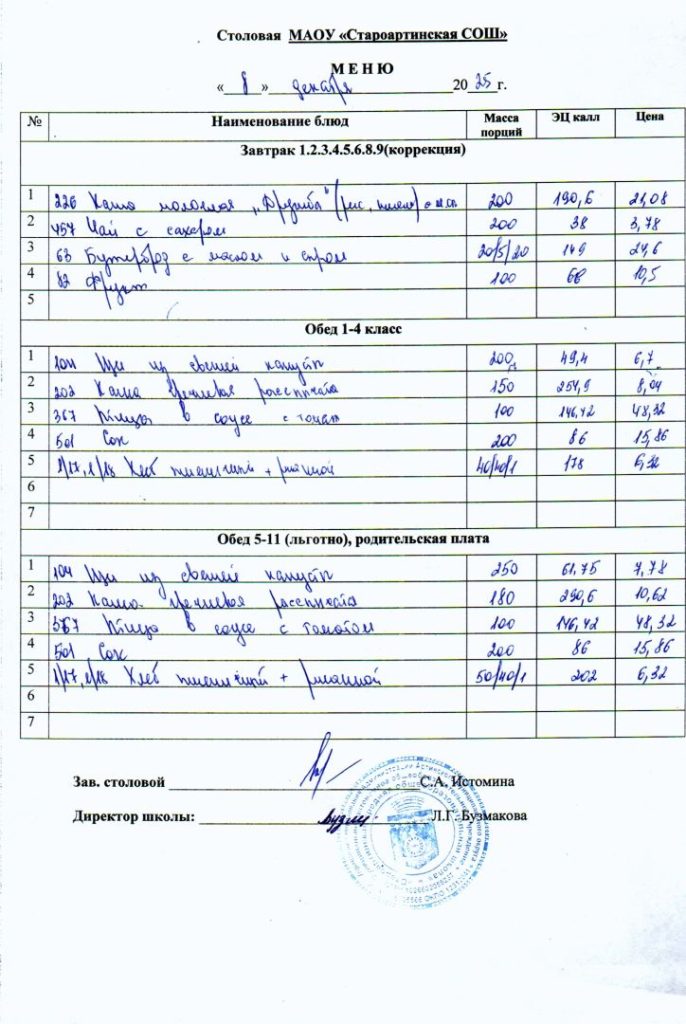 Столовая МАОУ «Староартинская СОШ»
МЕНЮ
« 8 » декабря 2025 г.
№ Наименование блюд Масса порций ЭЦ калл Цена
Завтрак 1.2.3.4.5.6.8.9(коррекция)
1 226 Каша молочная „Дружба" (рис, пшено) с м.сл 200 190,6 21,08
2 457 Чай с сахаром 200 38 3,78
3 63 Бутерброд с маслом и сыром 20/5/20 149 24,6
4 82 Фрукт 100 68 10,5
5
Обед 1-4 класс
1 104 Щи из свежей капусты 200 49,4 6,7
2 202 Каша гречневая рассыпчата 150 254,9 8,04
3 367 Птица в соусе с томат 100 146,42 48,32
4 501 Сок 200 86 15,86
5 1/17, 1/18 Хлеб пшеничный + ржаной 40/40/1 178 6,32
6
7
Обед 5-11 (льготно), родительская плата
1 104 Щи из свежей капусты 250 61,75 7,78
2 202 Каша гречневая рассыпчата 180 290,6 10,62
3 367 Птица в соусе с томатом 100 146,42 48,32
4 501 Сок 200 86 15,86
5 1/17, 1/18 Хлеб пшеничный + ржаной 50/40/1 202 6,32
6
7
Зав. столовой С.А. Истомина
Директор школы: Л.Г. Бузмакова